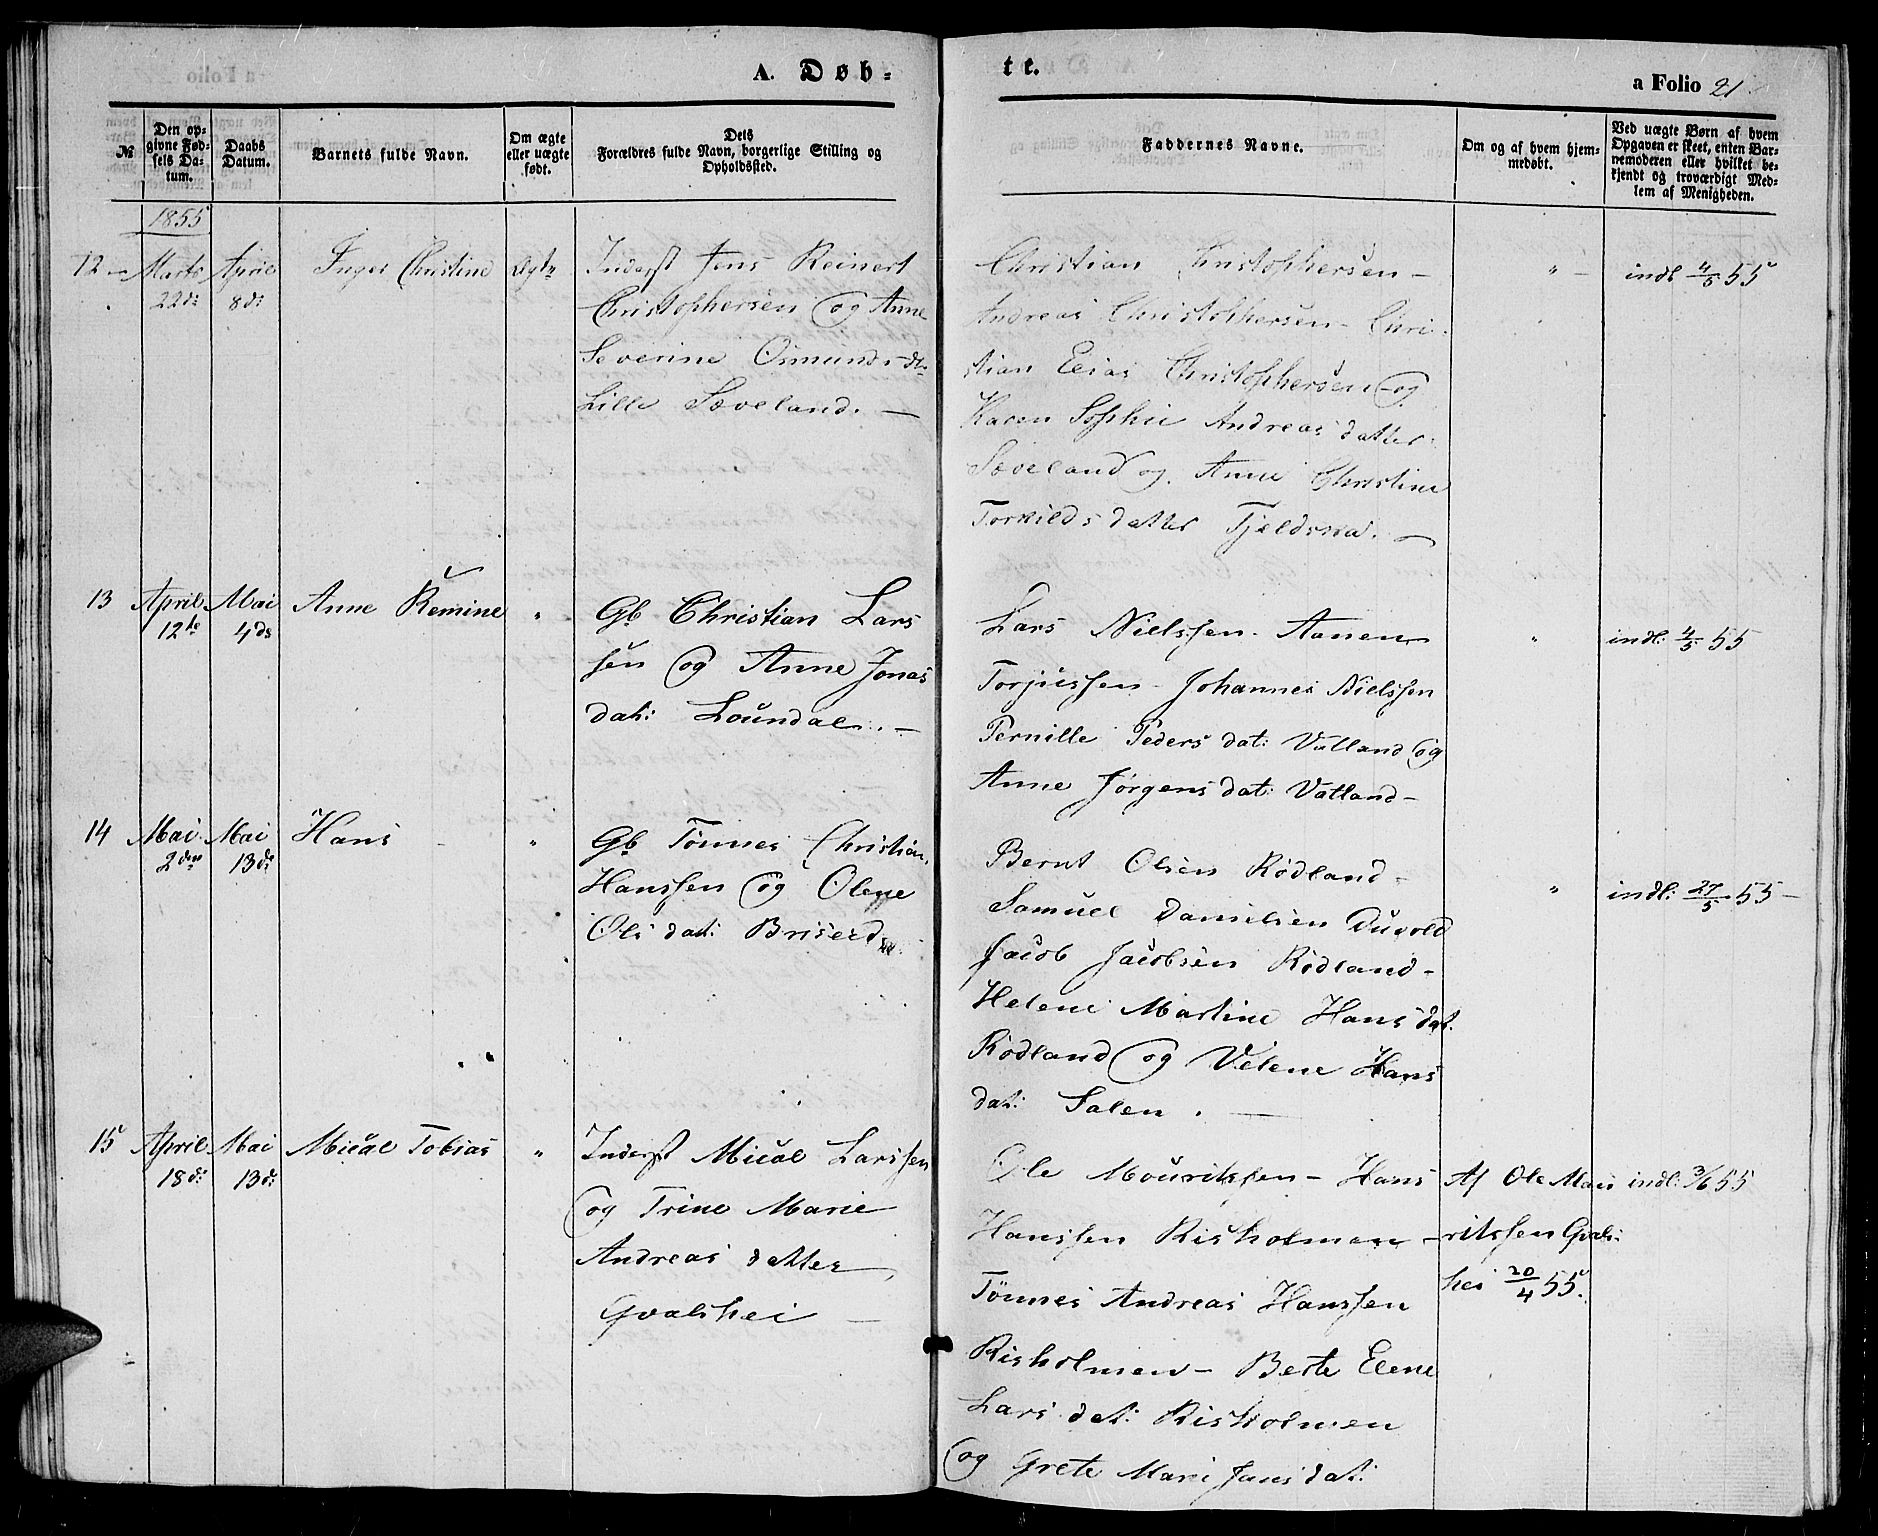 A. Døb-
te.
a Folio 21
№
Den op-
givne Fød-
sels Da-
tum.
Daabs
Datum.
Barnets fulde Navn.
Om ægte
eller uægte
født.
Dets
Forældres fulde Navn, borgerlige Stilling og
Opholdssted.
Faddernes Navne.
Om og af hvem hjem-
medøbt.
Ved uægte Børn af hvem
Opgaven er skeet, enten Bar-
nemoderen eller hvilket be-
kjendt og troværdigt Med-
lem af Menigheden.
1855
12 Marts April Inger Christine Ægte
22d: 8d:
Inderst Jens Reinert
Christophersen og Anne
Severine Osmundsdtr
Lille Sæveland. —
Christian Christophersen —
Andreas Christophersen - Chri-
stian Elias Christophersen og
Karen Sophie Andreasdatter
Sæveland og Anne Christine
Torkildsdatter Fjeldsaa. —
" indl 4/5 55
13 April Mai Anne Remine "
12te 4de
Gb Christian Lars
sen og Anne Jonas
dat: Loundal. —
Lars Nielssen - Aanen
Torjussen - Johannes Nielssen
Pernille Pedersdat: Vatland og
Anne Jørgensdat: Vatland -
" indl: 4/5 55
14 Mai Mai Hans "
2den 13de
Gb Tønnes Christian
Hanssen og Olene
Olsdat: Briseid
Bernt Olsen Rødland -
Samuel Danielsen Duvold
Jacob Jacobsen Rødland -
Helene Martine Hansdat.
Rødland og Velene Hans
dat: Salen. —
" indl: 27/5 55 —
15 April Mai Micäl Tobias "
18d: 13d:
Inderst Micäl Larssen
og Trine Marie
Andreasdatter
Gvalshei —
Ole Mouritssen - Hans
Hanssen Risholmen -
Tönnes Andreas Hanssen
Risholmen - Berte Elene
Larsdat: Risholmen
og Grete Marie Jansdat:
Af Ole Mou
ritssen Gvals-
hei 20/4 55.
indl: 3/6 55